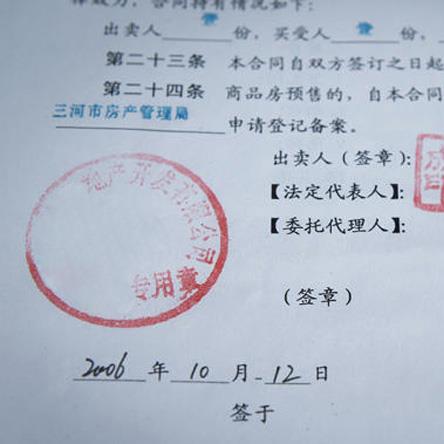 律效力，合同持有情况如下：
出卖人 壹 份，买受人 壹 份，
第二十三条 本合同自双方签订之日起
第二十四条 商品房预售的，自本合同
三河市房产管理局
申请登记备案。
出卖人（签章）：
【法定代表人】：
【委托代理人】：
地产开发有限公司
专用章
（签章）
2006 年 10 月 12 日
签于